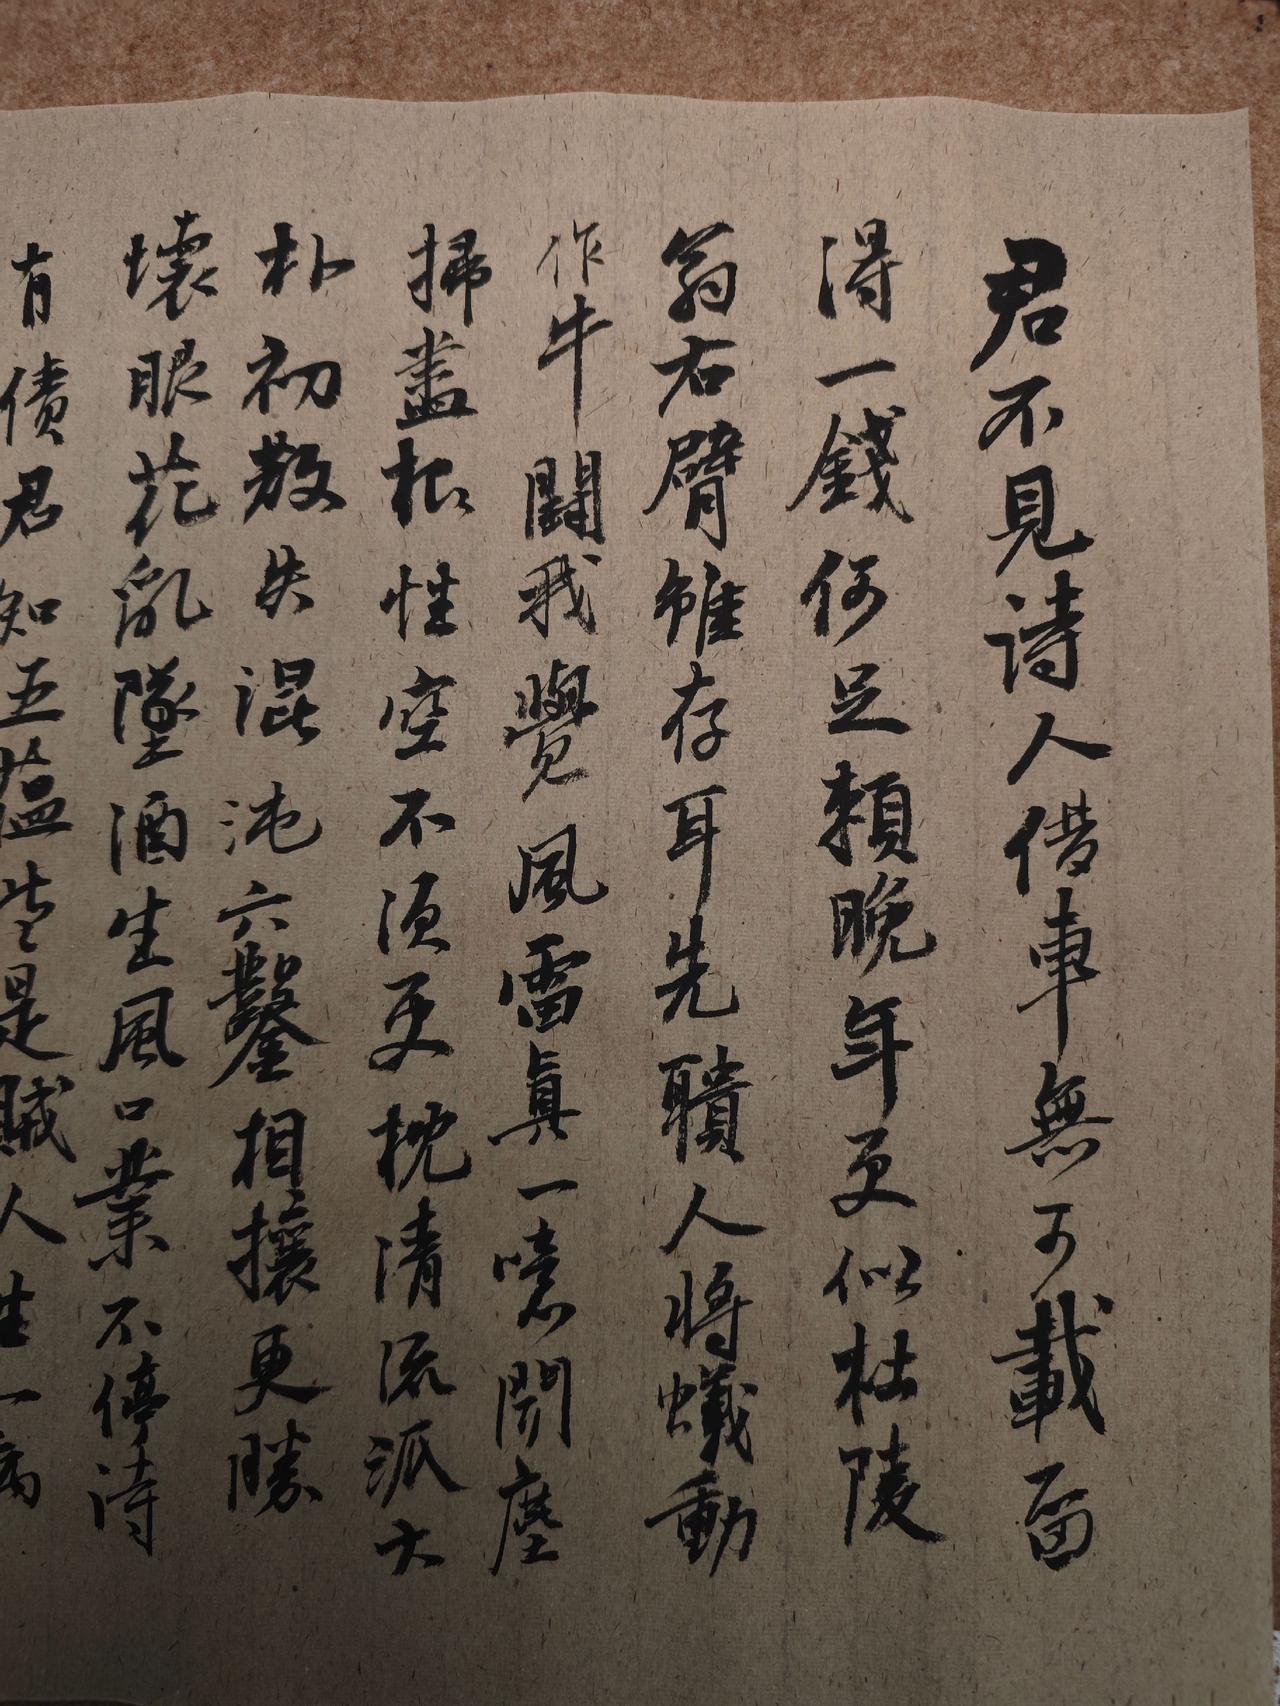 君不見詩人借車無可載留
得一錢何足賴晚年更似杜陵
翁右臂雖存耳先聵人將蟻動
作牛鬪我覺風雷真一噫聞塵
掃盡根性空不須更枕清流派大
朴初散失混沌六鑿相攘更勝
壞眼花亂墜酒生風口業不停詩
有債君知五蘊皆是賊人生一病